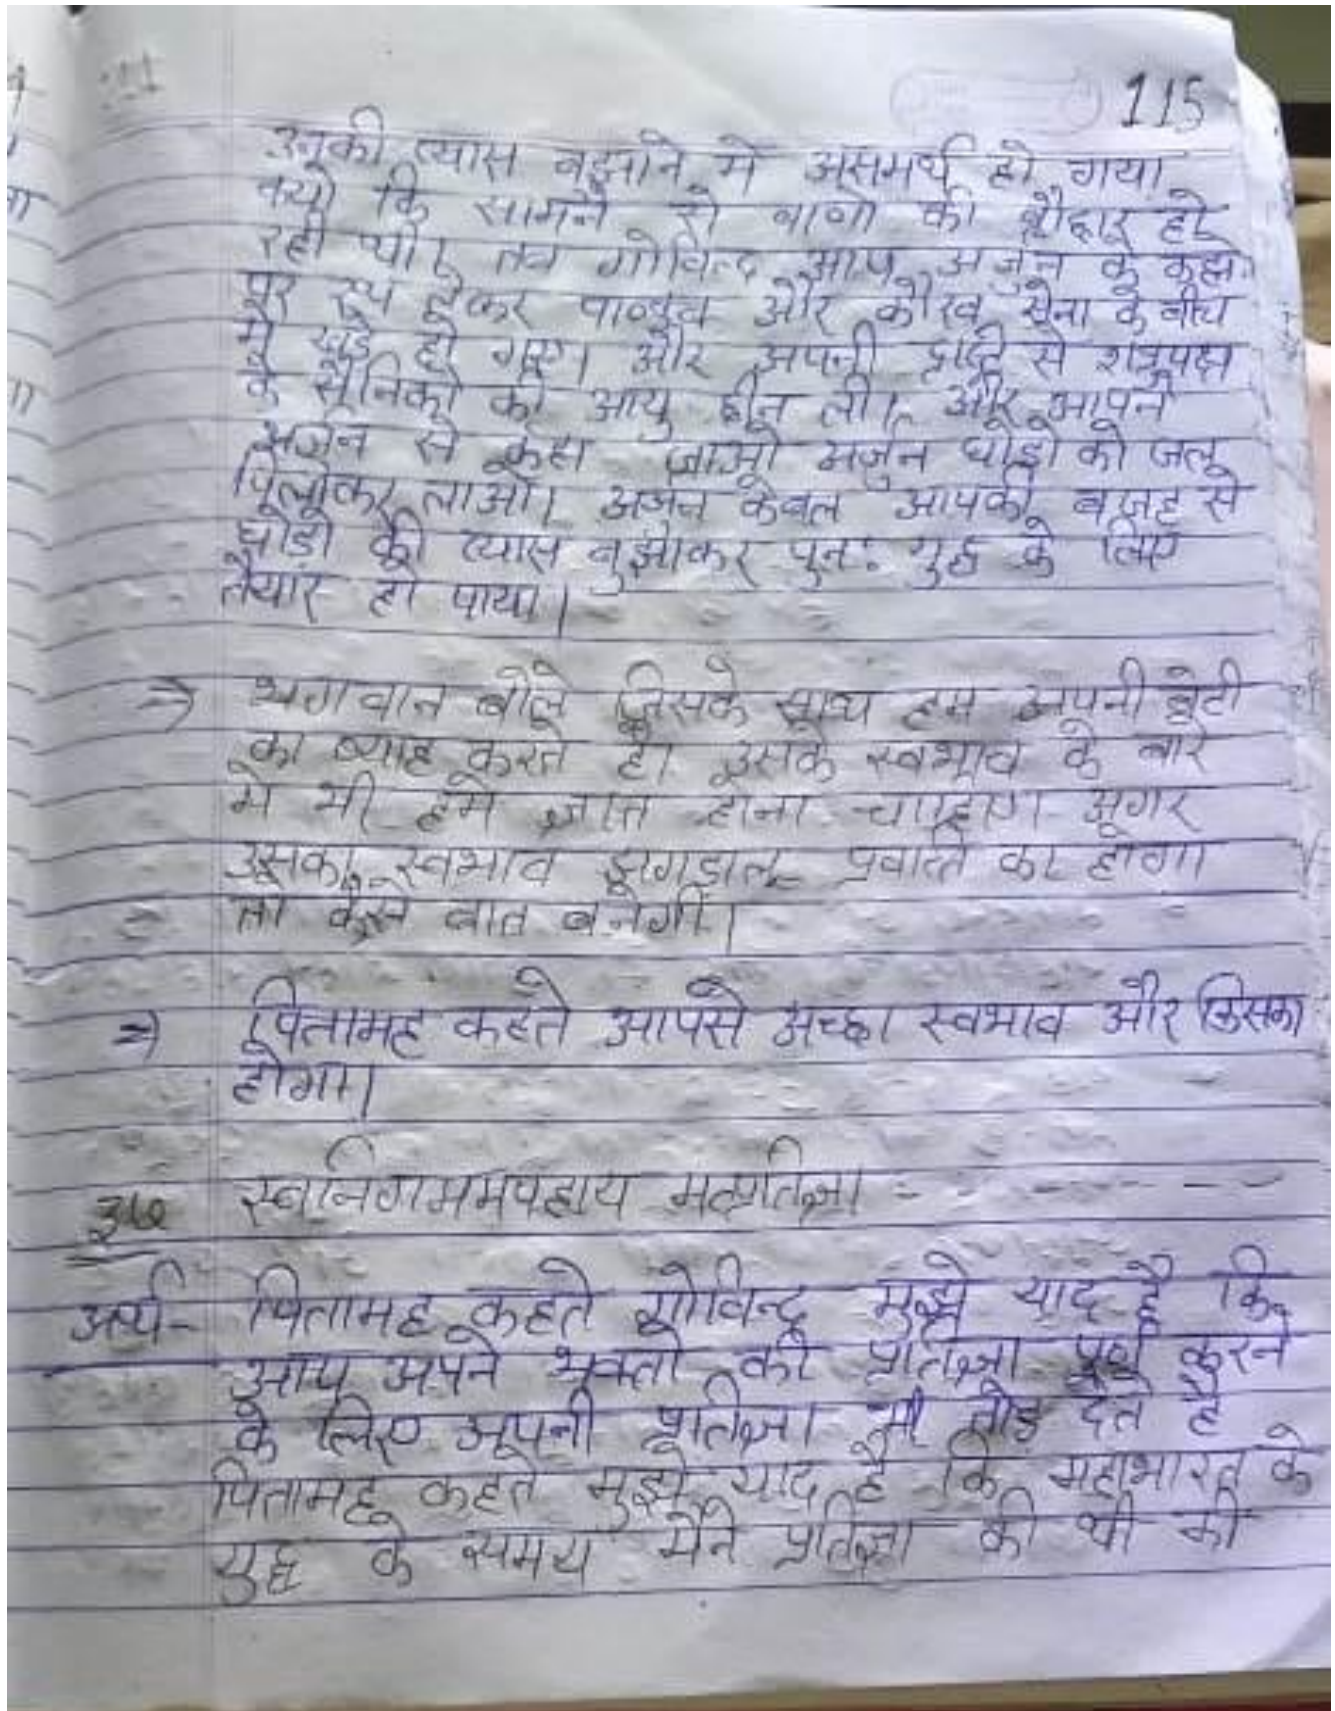 115
उनकी प्यास बुझाने मे असमर्थ हो गया
क्यो कि सामने से बाणो की बौछार हो
रही थी। तब गोविन्द आप अर्जुन के कहने
पर रथ लेकर पाण्डव और कौरव सेना के बीच
मे खड़े हो गए। और अपनी दृष्टि से शत्रुपक्ष
के सैनिको की आयु छीन ली। और आपने
अर्जुन से कहा जाओ अर्जुन घोड़ो को जल
पिलाकर लाओ। अर्जुन केवल आपकी वजह से
घोड़ो की प्यास बुझाकर पुनः युद्ध के लिए
तैयार हो पाया।
⇒ भगवान बोले जिसके साथ हम अपनी बेटी
का ब्याह करते है। उसके स्वभाव के बारे
मे भी हमे ज्ञात होना चाहिए। अगर
उसका स्वभाव झगडालू प्रवत्ति का होगा
तो कैसे बात बनेगी।
⇒ पितामह कहते आपसे अच्छा स्वभाव और किसका
होगा।
स्वनिगममपहाय मत्प्रतिज्ञा - - - - -
अर्थ- पितामह कहते गोविन्द मुझे याद है कि
आप अपने भक्तो की प्रतिज्ञा पूर्ण करने
के लिए अपनी प्रतिज्ञा भी तोड देते है
पितामह कहते मुझे याद है कि महाभारत के
युद्ध के समय मैने प्रतिज्ञा की थी की